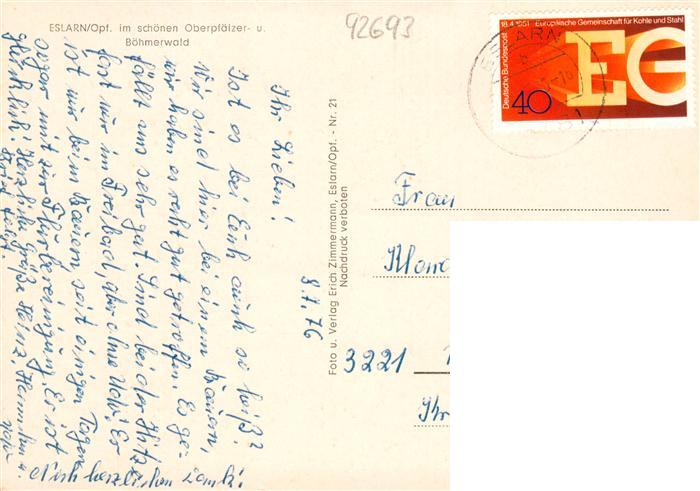 ESLARN/Opf. im schönen Oberpfälzer- u.
Böhmerwald
92693
18.4.1951 Europäische Gemeinschaft für Kohle und Stahl
Deutsche Bundespost
EG
40
ESLARN
Ihr Lieben!
Ist es bei Euch auch so heiß?
Wir sind hier bei einem Bauern,
wir haben es recht gut getroffen. Es ge-
fällt uns sehr gut. Sind bei der Hitze
fast nur im Freibad, aber ohne Udo! Er
ist nur beim Bauern seit einigen Tagen
sogar mit zur Flurbereinigung. Er ist
glücklich! Herzliche Grüße Heinz, Hannchen u.
Udo
Noch herzlichen Dank!
8.7.76
Foto u. Verlag Erich Zimmermann, Eslarn/Opf. - Nr. 21
Nachdruck verboten
Frau
3221